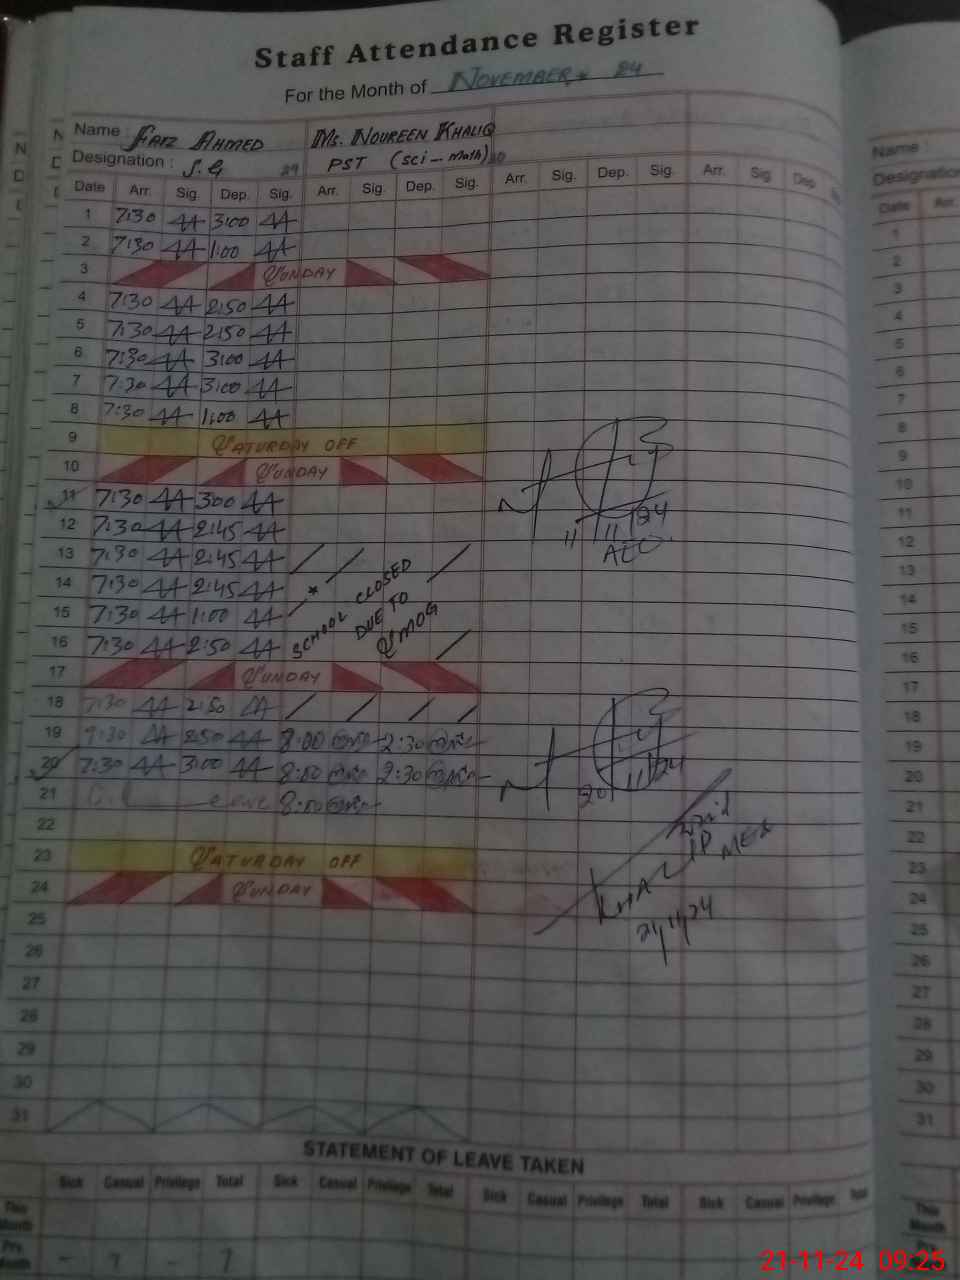 Staff Attendance Register
For the Month of NOVEMBER 24
Name : FAIZ AHMED MS. NOUREEN KHALIQ
Designation : S.G 29 PST (sci-math) 30
Date Arr. Sig. Dep. Sig. Arr. Sig. Dep. Sig. Arr. Sig. Dep. Sig. Arr. Sig. Dep
1 7:30 3:00
2 7:30 1:00
3 SUNDAY
4 7:30 2:50
5 7:30 2:50
6 7:30 3:00
7 7:30 3:00
8 7:30 1:00
9 SATURDAY OFF
10 SUNDAY
11 7:30 3:00
12 7:30 2:45
11/11/24
AEO.
13 7:30 2:45
14 7:30 2:45
15 7:30 1:00
16 7:30 2:50
SCHOOL CLOSED
DUE TO
SMOG
17 SUNDAY
18 7:30 2:50
19 7:30 2:50 8:00 2:30
20 7:30 3:00 8:00 2:30
20/11/24
21 leave 8:00
22
23 SATURDAY OFF
24 SUNDAY
21/11/24
25
26
27
28
29
30
31
STATEMENT OF LEAVE TAKEN
Sick Casual Privilege Total Sick Casual Privilege Total Sick Casual Privilege Total Sick Casual Privilege Total
This Month
Pre. Month - 7 - 7
Name :
Designation
Date Arr.
1
2
3
4
5
6
7
8
9
10
11
12
13
14
15
16
17
18
19
20
21
22
23
24
25
26
27
28
29
30
31
This Month
Pre. Month
21-11-24 09:25